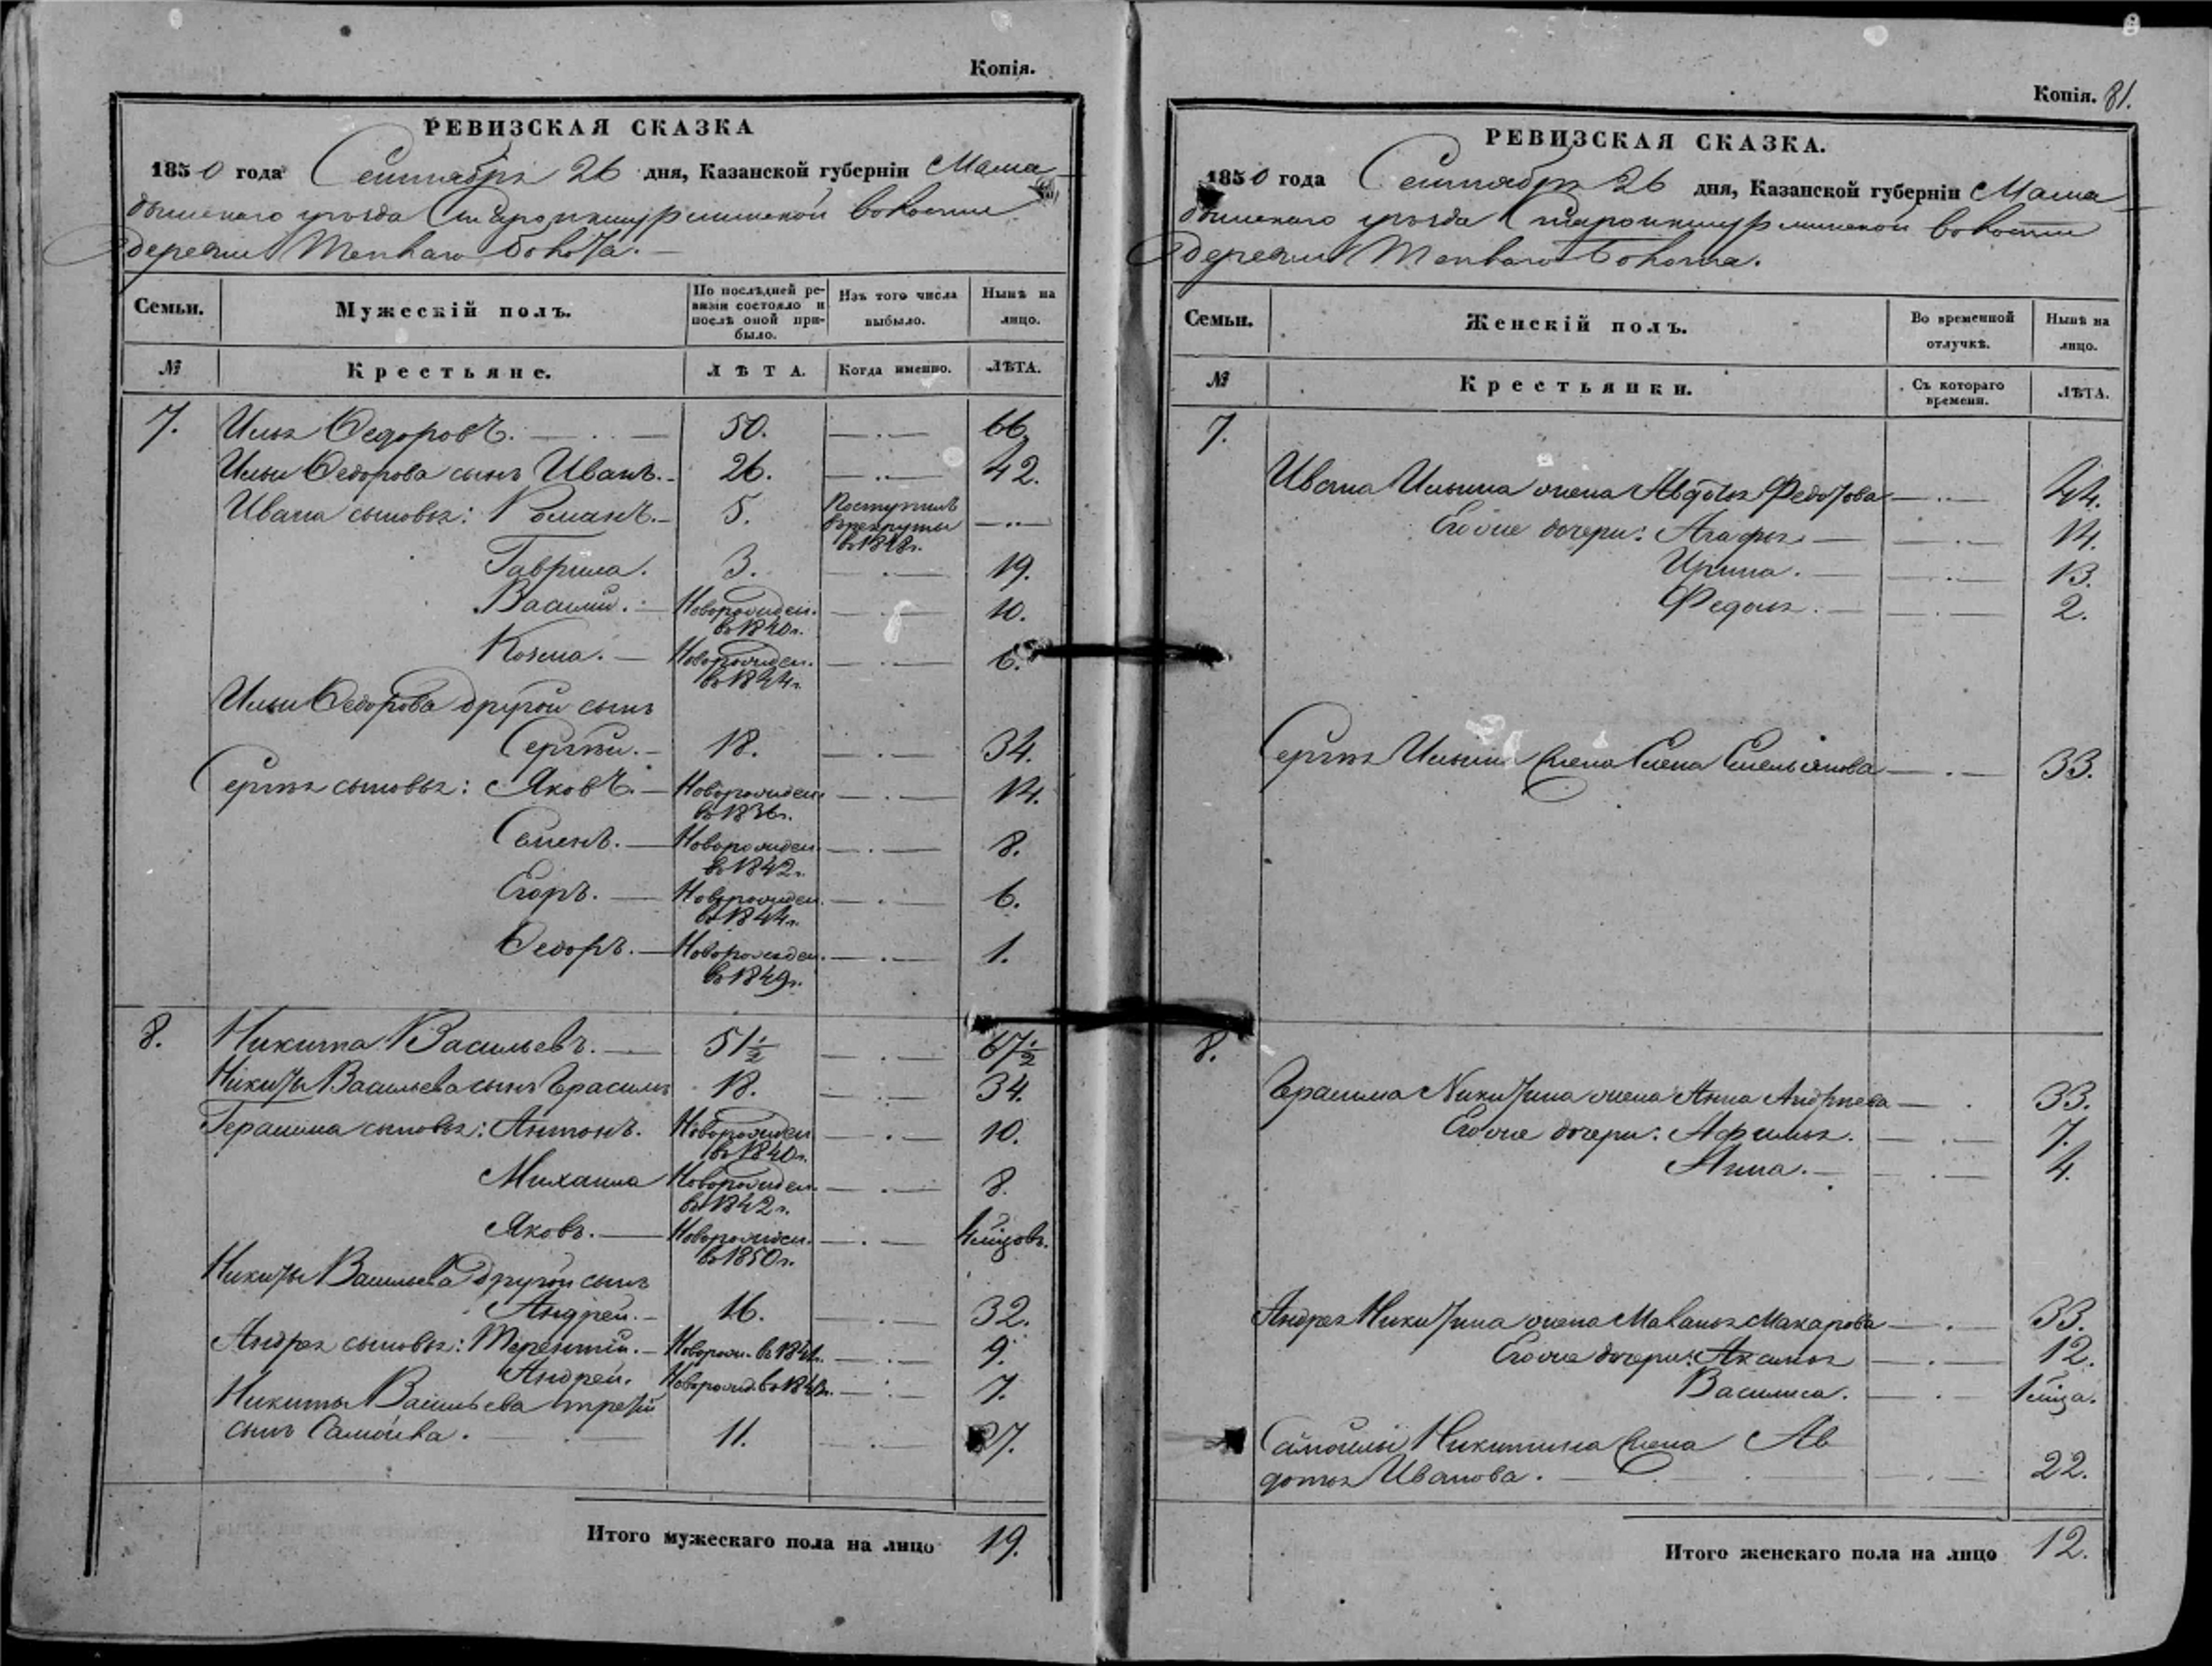 Копія.
РЕВИЗСКАЯ СКАЗКА
1850 года Сентября 26 дня, Казанской губерніи Мама-
дышскаго уѣзда Старопкшурминской волости
деревни Теплаго болота.
Семьи.
Мужескій полъ.
По послѣдней ре-
визіи состояло и
послѣ оной при-
было.
Изъ того числа
выбыло.
Нынѣ на
лицо.
№
Крестьяне.
ЛѢТА.
Когда именно.
ЛѢТА.
7. Илья Ѳедоровъ. 50. 66.
Ильи Ѳедорова сынъ Иванъ. 26. 42.
Ивана сыновья: Романъ. 5. Поступилъ
въ рекруты
въ 1848г.
Гаврила. 3. 19.
Василій. Новорожден. 10.
въ 1840г.
Козма. Новорожден. 6.
въ 1844г.
Ильи Ѳедорова другой сынъ
Сергѣй. 18. 34.
Сергѣя сыновья: Яковъ. Новорожден. 14.
въ 1836г.
Семенъ. Новорожден. 8.
въ 1842г.
Егоръ. Новорожден. 6.
въ 1844г.
Ѳедоръ. Новорожден. 1.
въ 1849г.
8. Никита Васильевъ. 51 1/2 67 1/2
Никиты Васильева сынъ Герасимъ 18. 34.
Герасима сыновья: Антонъ. Новорожден. 10.
въ 1840г.
Михаила Новорожден. 8.
въ 1842г.
Яковъ. Новорожден.
въ 1850г.
Никиты Васильева другой сынъ
Андрей. 16. 32.
Андрея сыновья: Терентій. Новорож. въ 1841г. 9.
Андрей. Новорожд. въ 7.
Никиты Васильева третій
сынъ Самойла. 11. 27.
Итого мужескаго пола на лицо 19.
Копія. 81.
РЕВИЗСКАЯ СКАЗКА.
1850 года Сентября 26 дня, Казанской губерніи Мама-
дышскаго уѣзда Старопкшурминской волости
деревни Теплаго Болота.
Семьи.
Женскій полъ.
Во временной
отлучкѣ.
Нынѣ на
лицо.
№
Крестьянки.
Съ котораго
времени.
ЛѢТА.
7.
Ивана Ильина жена Авдотья Федотова 44.
Его же дочери: Агафья 14.
Ирина. 13.
Федосья. 2.
Сергѣя Ильина жена Елена Емельянова 33.
8.
Герасима Никитина жена Анна Андреева 33.
Его же дочери: Афимья. 7.
Анна. 4.
Андрея Никитина жена Маланья Макарова 33.
Его же дочери: Аксинья 12.
Василиса. 1 мѣсяца.
Самойлы Никитина жена Ав
дотья Иванова. 22.
Итого женскаго пола на лицо 12.